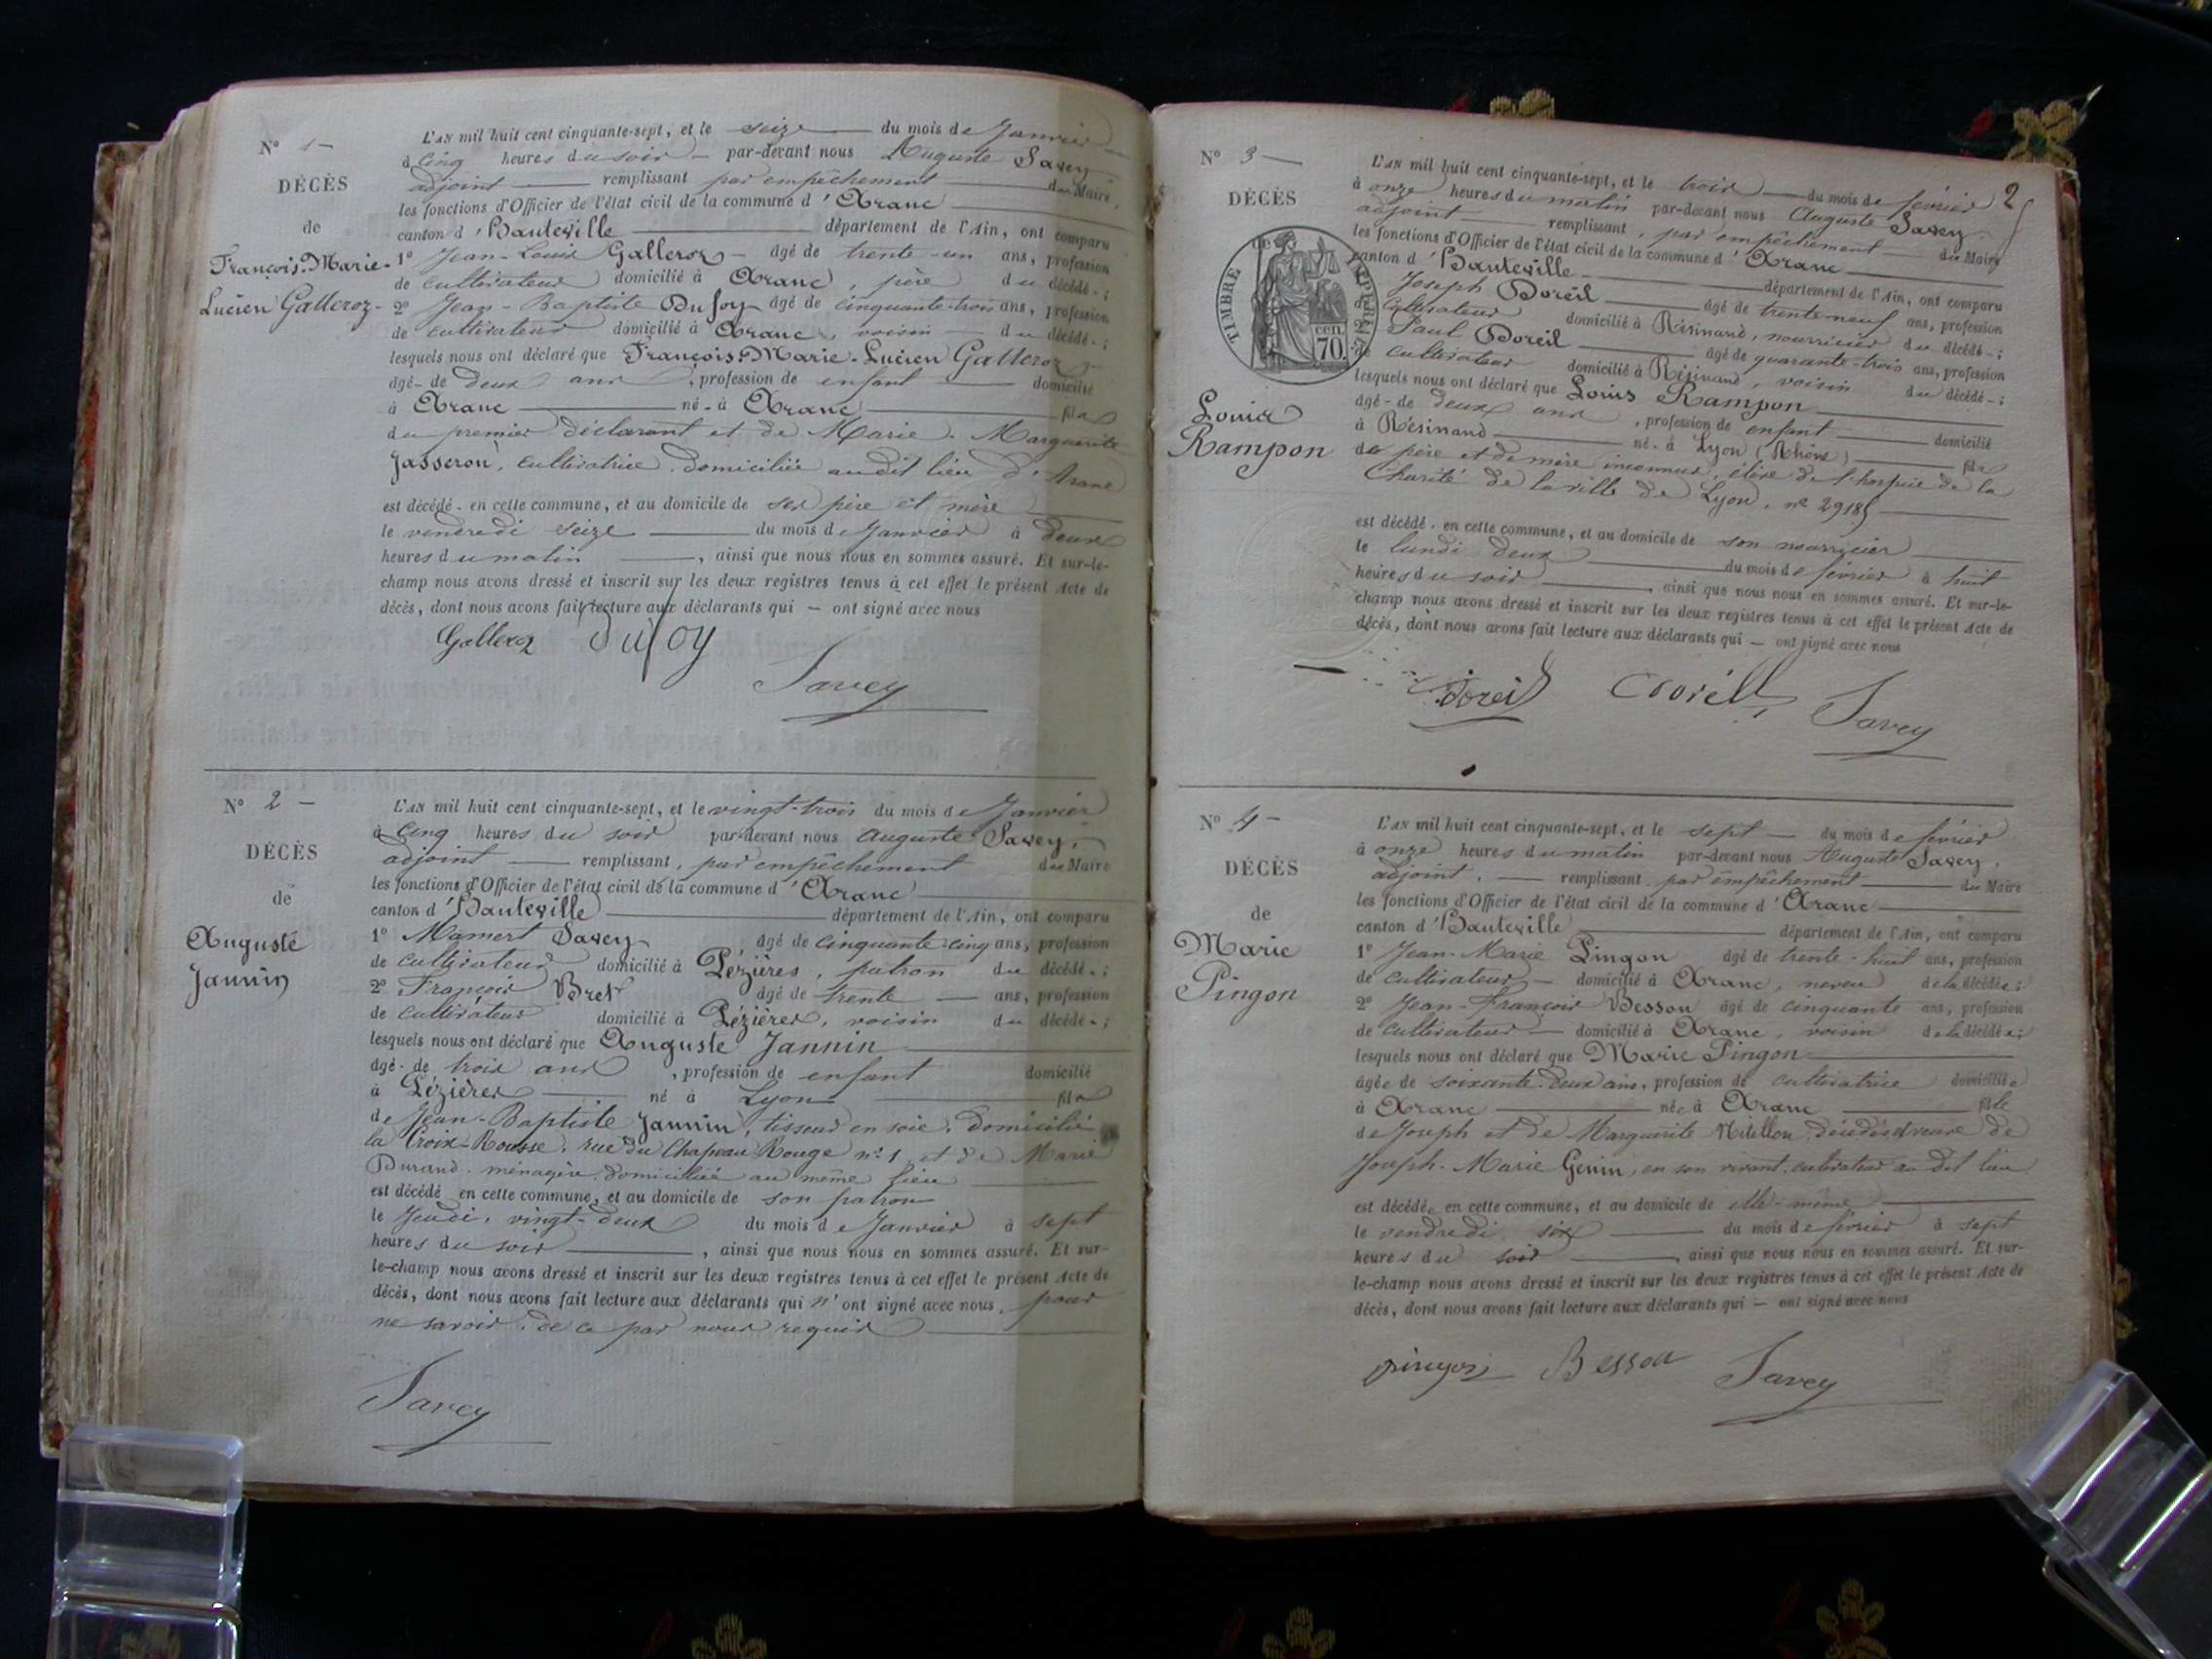 N° 1 —
DÉCÈS
de
François-Marie-
Lucien Galleroz -
L'AN mil huit cent cinquante-sept, et le seize du mois de Janvier
à cinq heures du soir par-devant nous Auguste Savey
adjoint remplissant par empêchement du Maire,
les fonctions d'Officier de l'état civil de la commune d'Aranc
canton d'Hauteville département de l'Ain, ont comparu
1° Jean-Louis Galleroz âgé de trente-un ans, profession
de cultivateur domicilié à Aranc, père du décédé.;
2° Jean-Baptiste Dufoy âgé de cinquante-trois ans, profession
de cultivateur domicilié à Aranc, voisin du décédé.;
lesquels nous ont déclaré que François-Marie-Lucien Galleroz
âgé de deux ans, profession de enfant domicilié
à Aranc né à Aranc fils
du premier déclarant et de Marie-Marguerite
Jasseron, cultivatrice, domiciliée audit lieu d'Aranc
est décédé en cette commune, et au domicile de ses père et mère
le vendredi seize du mois de Janvier à deux
heures du matin, ainsi que nous nous en sommes assuré. Et sur-le-
champ nous avons dressé et inscrit sur les deux registres tenus à cet effet le présent Acte de
décès, dont nous avons fait lecture aux déclarants qui — ont signé avec nous
Galleroz Dufoy
Savey
N° 2 —
DÉCÈS
de
Auguste
Jannin
L'AN mil huit cent cinquante-sept, et le vingt-trois du mois de Janvier
à cinq heures du soir par-devant nous Auguste Savey,
adjoint remplissant, par empêchement du Maire
les fonctions d'Officier de l'état civil de la commune d'Aranc
canton d'Hauteville département de l'Ain, ont comparu
1° Mamert Savey âgé de cinquante-cinq ans, profession
de cultivateur domicilié à Pézières, patron du décédé.;
2° François Bret âgé de trente ans, profession
de cultivateur domicilié à Pézières, voisin du décédé.;
lesquels nous ont déclaré que Auguste Jannin
âgé de trois ans, profession de enfant domicilié
à Pézières né à Lyon fils
de Jean-Baptiste Jannin, tisseur en soie, domicilié
la Croix-Rousse, rue du Chapeau Rouge n° 1 et de Marie
Durand, ménagère, domiciliée au même lieu
est décédé en cette commune, et au domicile de son patron
le Jeudi, vingt-deux du mois de Janvier à sept
heures du soir, ainsi que nous nous en sommes assuré. Et sur-
le-champ nous avons dressé et inscrit sur les deux registres tenus à cet effet le présent Acte de
décès, dont nous avons fait lecture aux déclarants qui n'ont signé avec nous, pour
ne savoir, de ce par nous requis
Savey
2
N° 3 —
DÉCÈS
de
TIMBRE IMPÉRIAL
cen.
70.
Louis
Rampon
L'AN mil huit cent cinquante-sept, et le trois du mois de février
à onze heures du matin par-devant nous Auguste Savey
adjoint remplissant, par empêchement du Maire
les fonctions d'Officier de l'état civil de la commune d'Aranc
canton d'Hauteville département de l'Ain, ont comparu
Joseph Doreil âgé de trente-neuf ans, profession
de cultivateur domicilié à Résinand, nourricier du décédé.;
Paul Doreil âgé de quarante-trois ans, profession
de cultivateur domicilié à Résinand, voisin du décédé.;
lesquels nous ont déclaré que Louis Rampon
âgé de deux ans, profession de enfant domicilié
à Résinand né à Lyon (Rhône) fils
de père et de mère inconnus, élève de l'hospice de la
Charité de la ville de Lyon, n° 29185
est décédé en cette commune, et au domicile de son nourricier
le lundi deux du mois de février à huit
heures du soir, ainsi que nous nous en sommes assuré. Et sur-le-
champ nous avons dressé et inscrit sur les deux registres tenus à cet effet le présent Acte de
décès, dont nous avons fait lecture aux déclarants qui — ont signé avec nous
Doreil Doreil Savey
N° 4 —
DÉCÈS
de
Marie
Pingon
L'AN mil huit cent cinquante-sept, et le sept du mois de février
à onze heures du matin par-devant nous Auguste Savey,
adjoint, remplissant, par empêchement du Maire
les fonctions d'Officier de l'état civil de la commune d'Aranc
canton d'Hauteville département de l'Ain, ont comparu
1° Jean-Marie Pingon âgé de trente-huit ans, profession
de cultivateur domicilié à Aranc, neveu de la décédée;
2° Jean-François Besson âgé de cinquante ans, profession
de cultivateur domicilié à Aranc, voisin de la décédée;
lesquels nous ont déclaré que Marie Pingon
âgée de soixante-deux ans, profession de cultivatrice domiciliée
à Aranc née à Aranc fille
de Joseph et de Marguerite Nitellon, décédés, veuve de
Joseph-Marie Genin, en son vivant, cultivateur au dit lieu
est décédée en cette commune, et au domicile de elle-même
le vendredi six du mois de février à sept
heures du soir, ainsi que nous nous en sommes assuré. Et sur-
le-champ nous avons dressé et inscrit sur les deux registres tenus à cet effet le présent Acte de
décès, dont nous avons fait lecture aux déclarants qui — ont signé avec nous
pingon Besson Savey